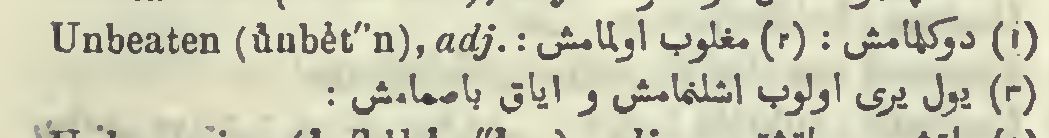 Unbeaten (ŭnbèt″n), adj. : (١) دوكلمامش : (٢) مغلوب اولمامش
(٣) يول يرى اولوب اشلنمامش و اياق باصمامش :